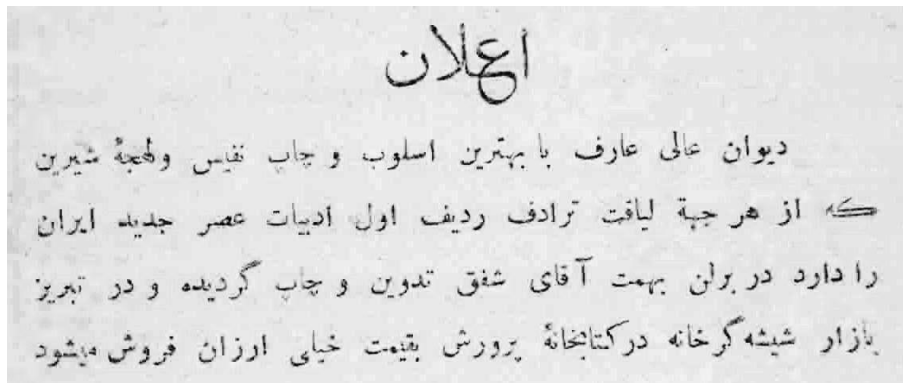 اعلان
دیوان عالی عارف با بهترین اسلوب و چاپ نفیس و لهجهٔ شیرین
که از هر جهة لیاقت ترادف ردیف اول ادبیات عصر جدید ایران
را دارد در برلن بهمت آقای شفق تدوین و چاپ گردیده و در تبریز
بازار شیشه گر خانه در کتابخانهٔ پرورش بقیمت خیلی ارزان فروش میشود